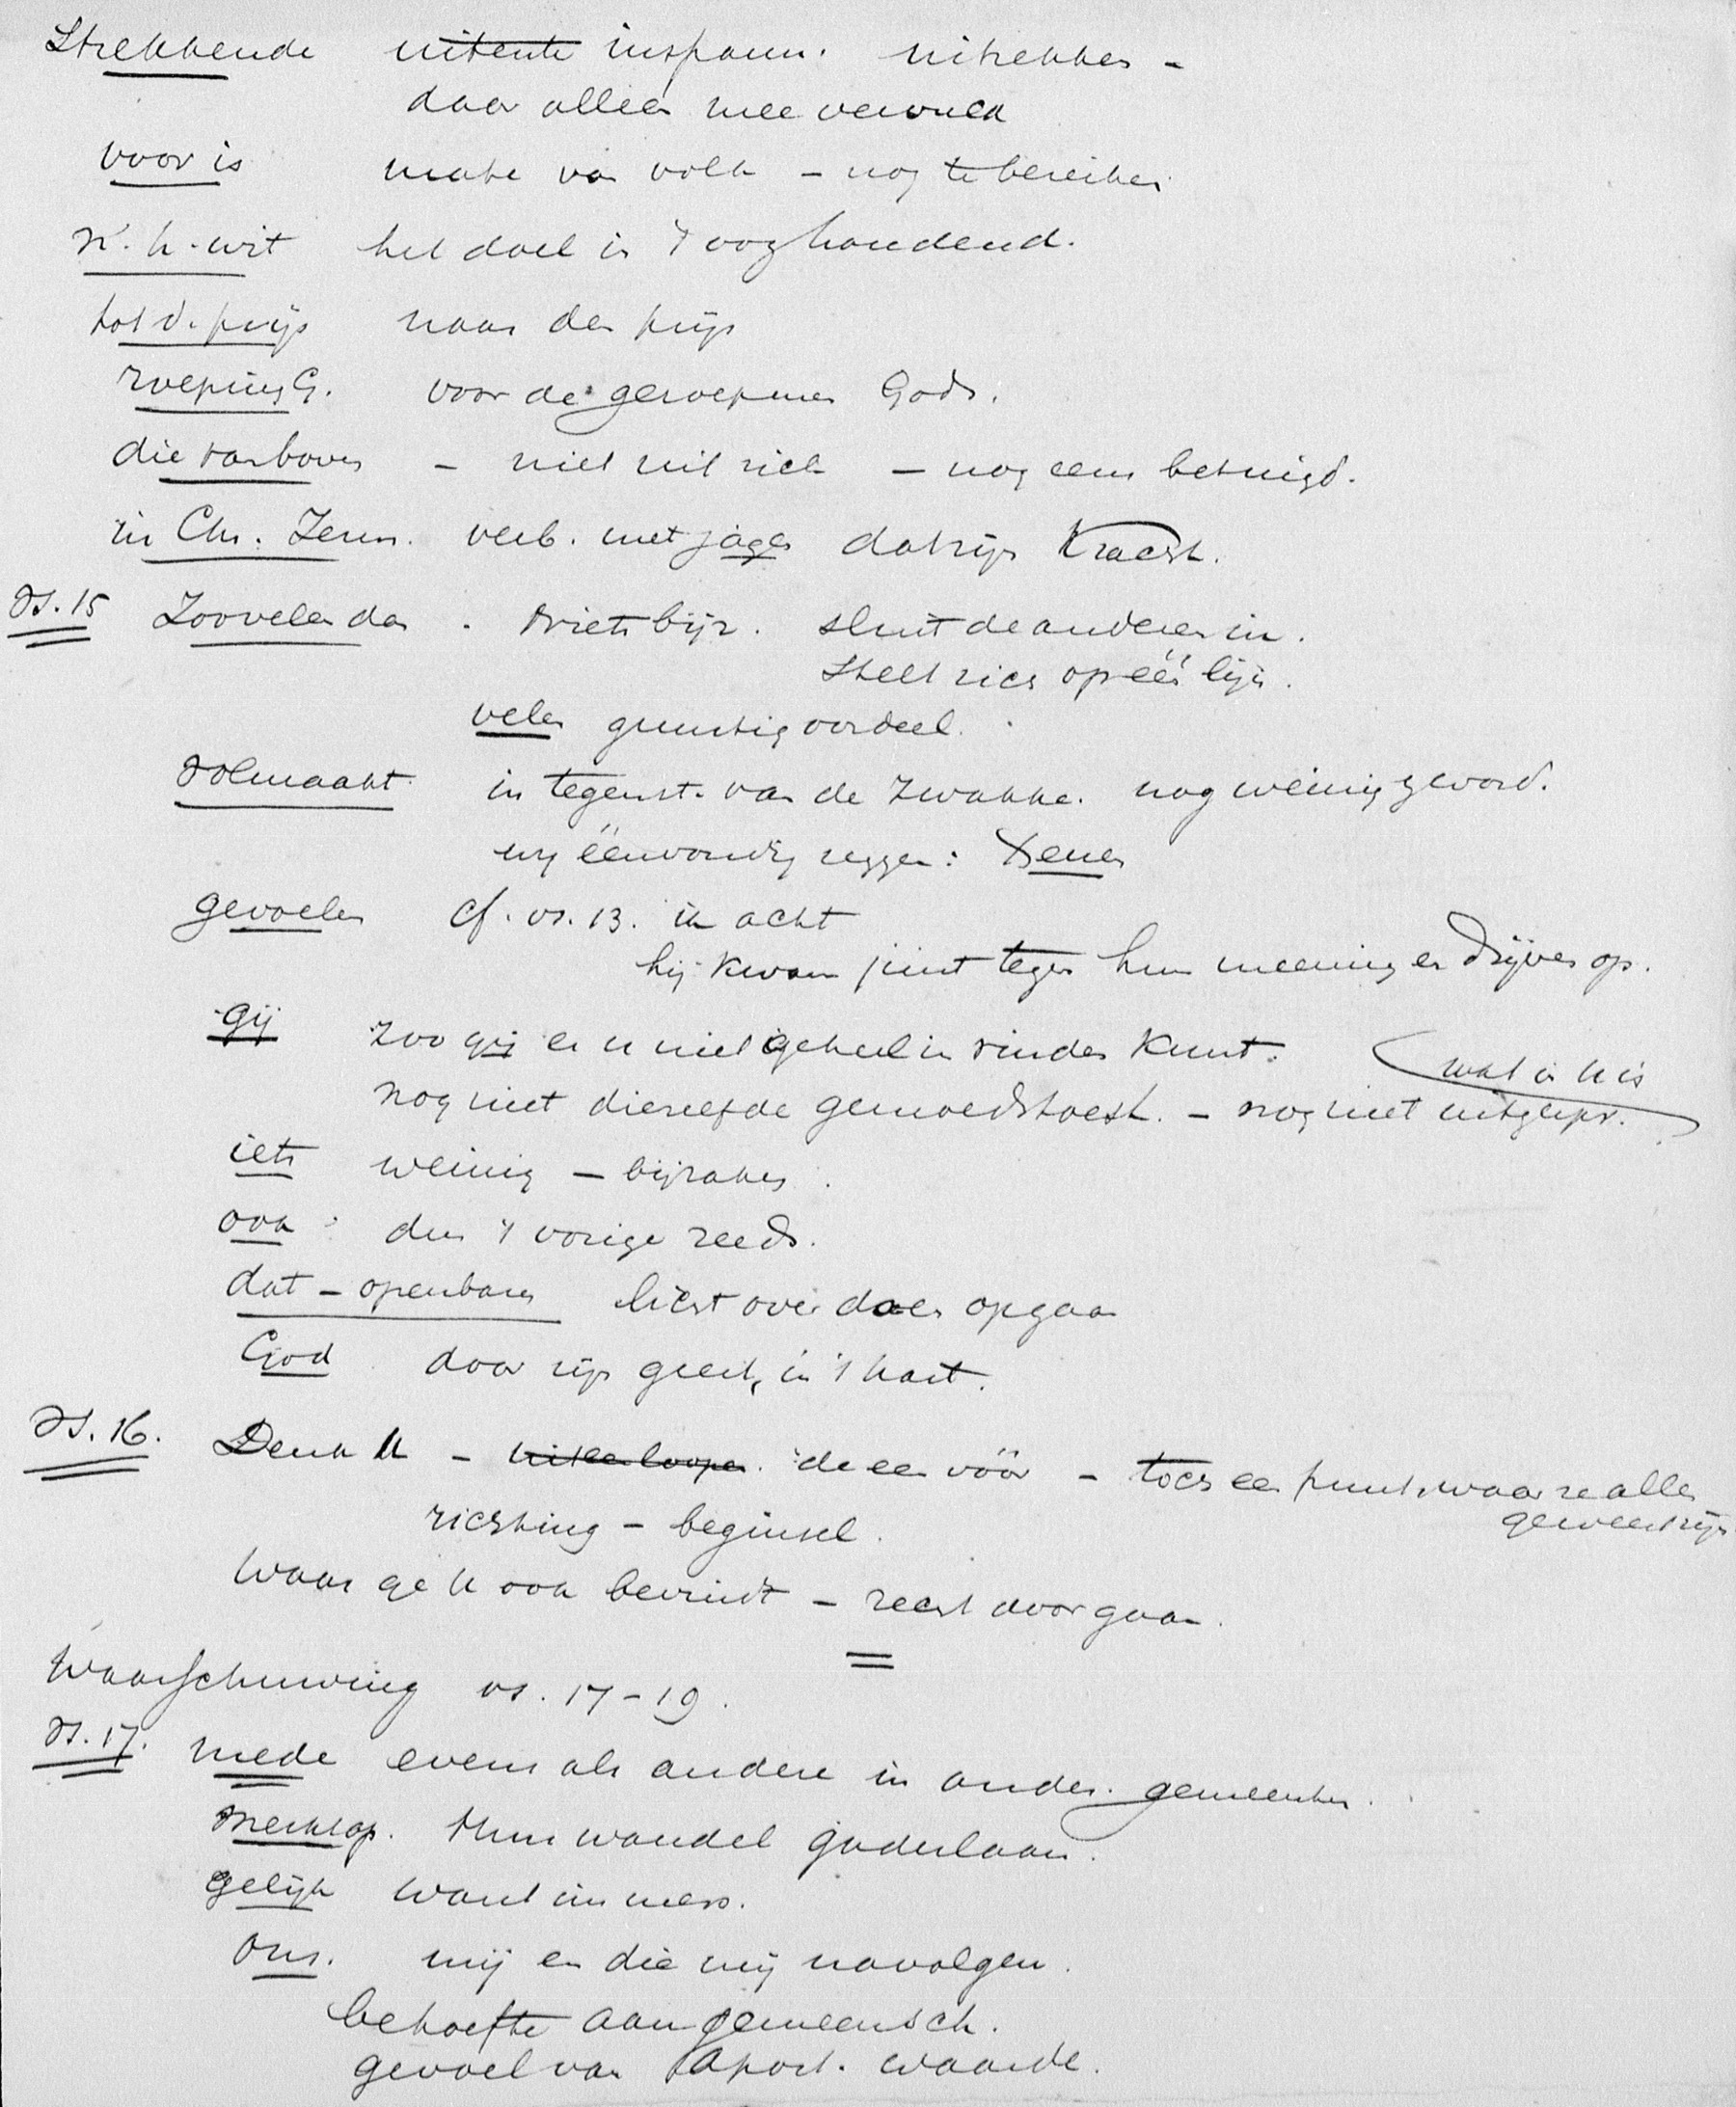 Strekkende uitente inspann. uitrekken -
daar alleen mee vervuld
voor is mate van volk - nog te bereiken
n. h. wit het doel in 't oog houdend.
tot d. prijs naar den prijs
roeping G. voor de geroepenen Gods.
die van boven - niet uit zich - nog eens betuigd.
in Chr. Jezus. verb. met jagen dat zijn Kracht.
Vs. 15 Zoovelen dan . niets bijz. sluit de anderen in.
Stelt zich op één lijn.
velen gunstig oordeel.
Volmaakt in tegenst. van de zwakke. nog weinig gevord.
wij eenvoudig zeggen:
gevoelen cf. vs. 13. ik acht
hij kwam juist tegen hun meening en drijven op.
gij zoo gij er u niet geheel in vinden kunt.
wat in u is
nog niet dierzelfde gemoedstoest. - nog niet uitgespr.
iets weinig - bijzaken.
ook : dus 't vorige reeds.
dat - openbaren licht over doen opgaan
God door zijn geest, in 't hart.
Vs. 16. Denk U - uiteenloopen. de een vóór - toch een punt, waar ze allen
geweest zijn
richting - beginsel.
Waar ge U ook bevindt - recht doorgaan.
Waarschuwing vs. 17-19.
Vs. 17. mede evenals andere in ander. gemeenten.
Merkt op. Hun wandel gadeslaan.
gelijk want immers.
ons. mij en die mij navolgen.
behoefte aan gemeensch.
gevoel van Apost. waarde.